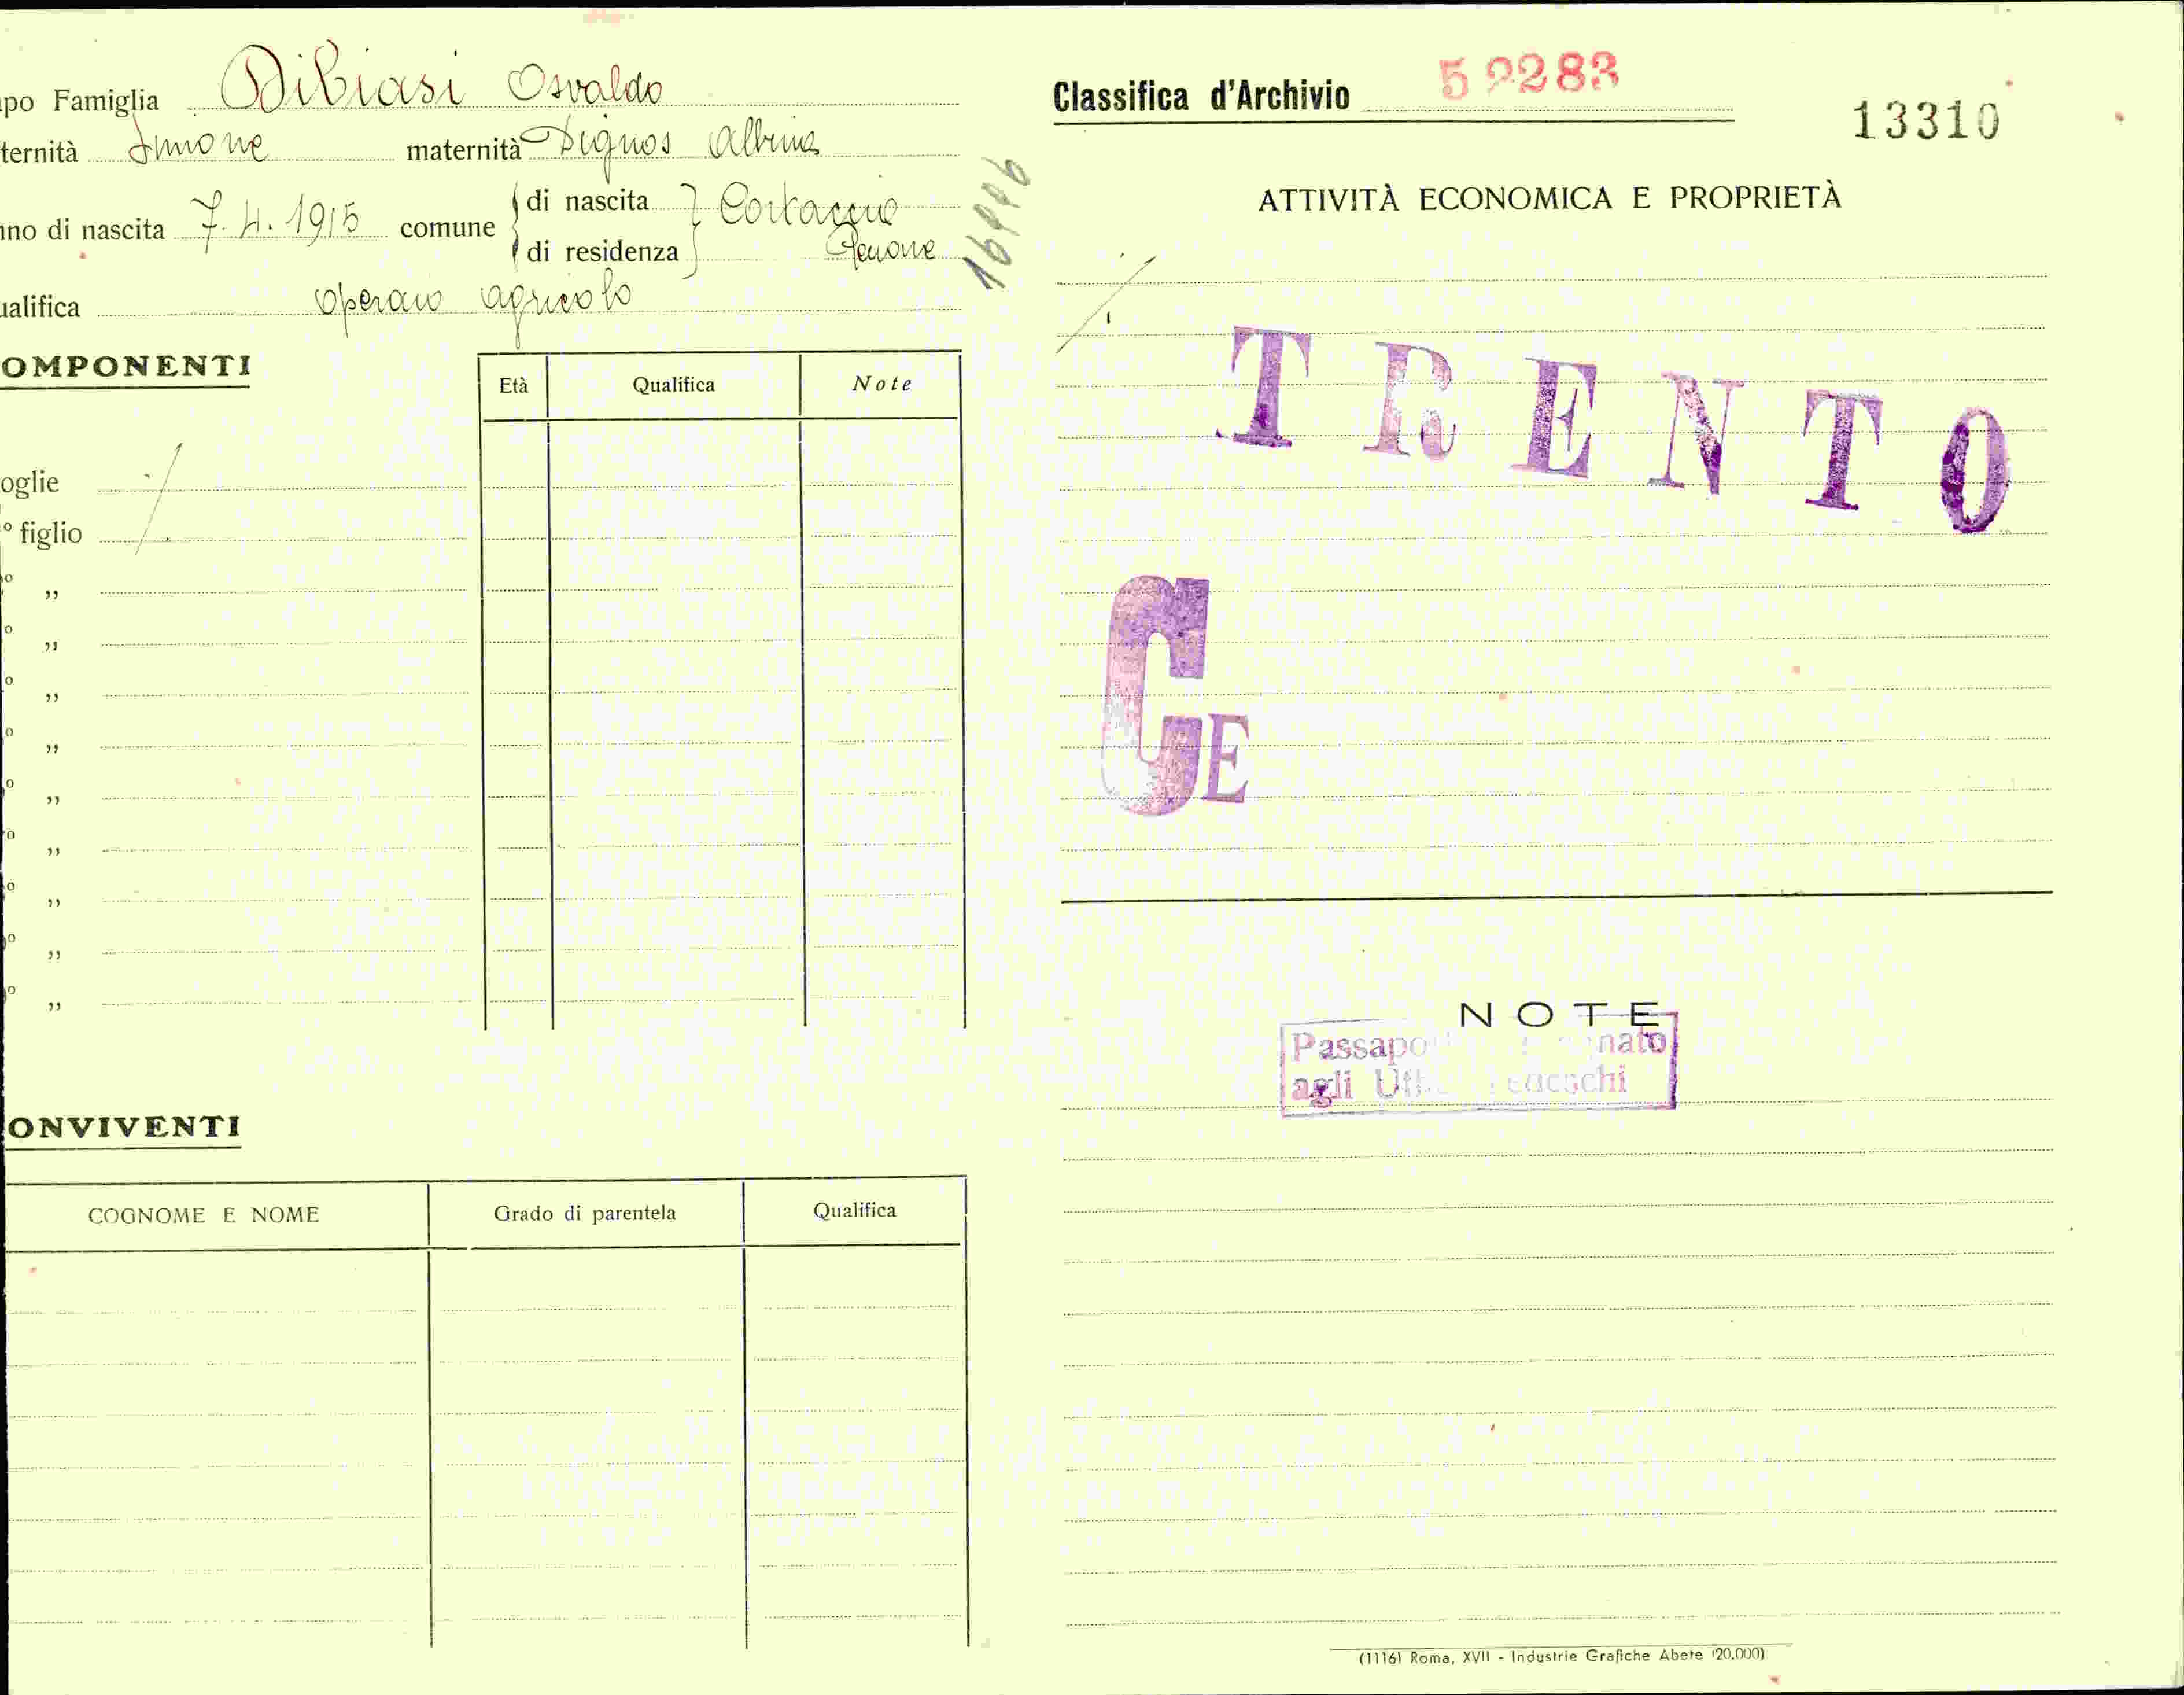 po Famiglia Dibiasi Osvaldo
ternità Simone maternità Dignos Albina
nno di nascita 7.4.1915 comune di nascita Cortaccia
di residenza Penone
16446
ualifica operaio agricolo
OMPONENTI
Età Qualifica Note
oglie
° figlio
° „
° „
° „
° „
° „
° „
° „
° „
° „
ONVIVENTI
COGNOME E NOME Grado di parentela Qualifica
Classifica d'Archivio 52283
13310
ATTIVITÀ ECONOMICA E PROPRIETÀ
TRENTO
GE
NOTE
Passapo nato
agli Uff tedeschi
(1116) Roma, XVII - Industrie Grafiche Abete (20.000)